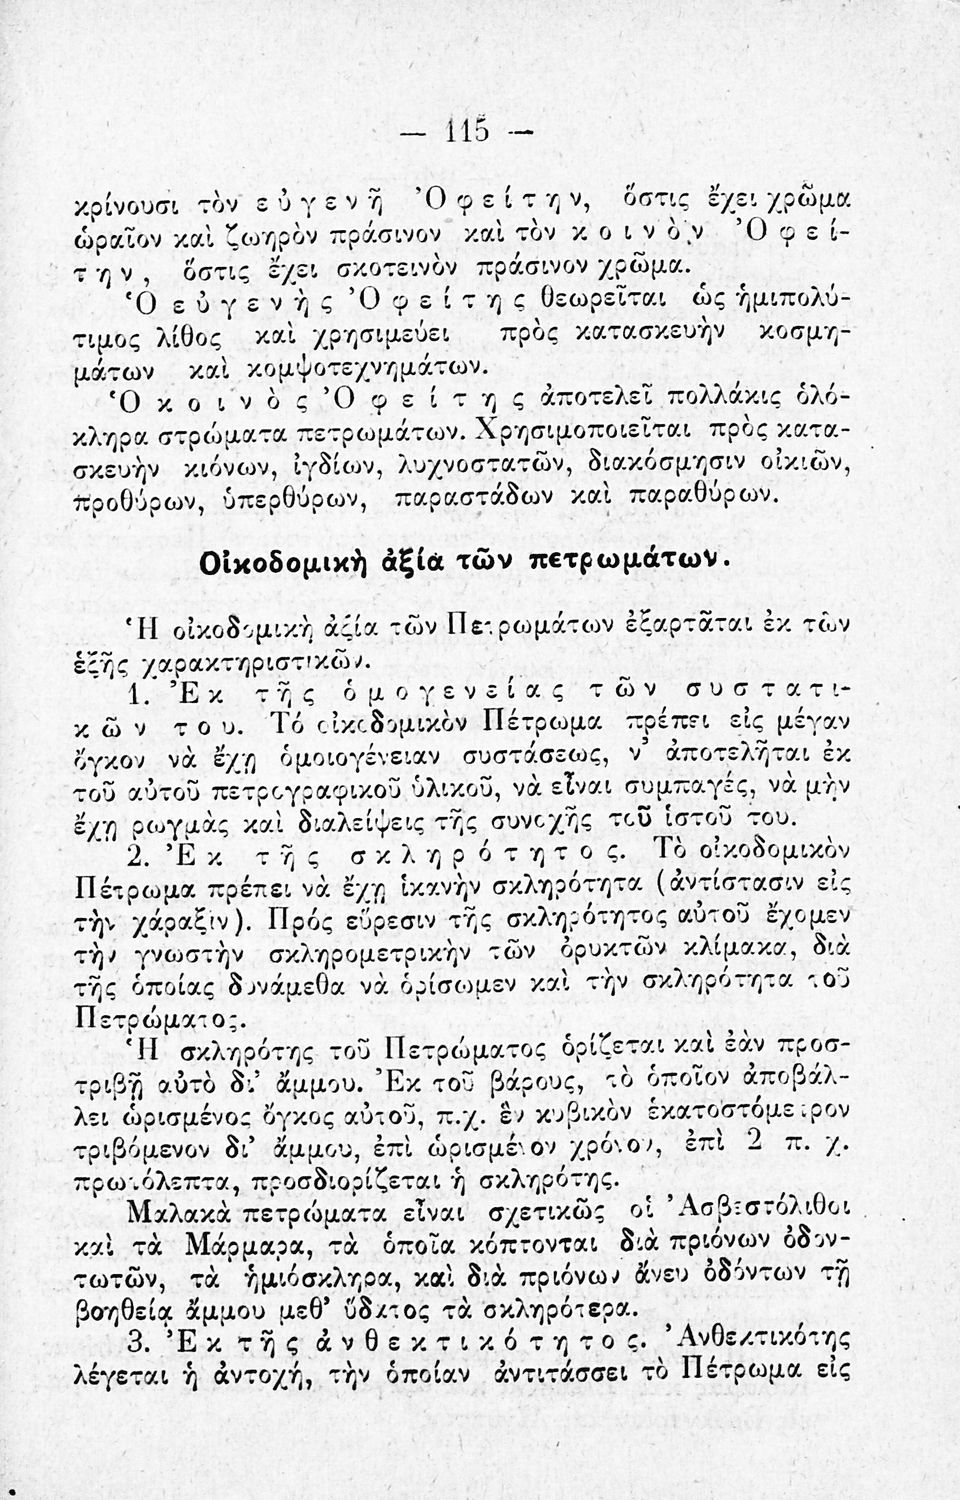 — 115 —
κρίνουσι τὸν εὐγενῆ Ὀφείτην, ὅστις ἔχει χρῶμα
ὡραῖον καὶ ζωηρὸν πράσινον καὶ τὸν κοινὸν Ὀφεί-
την, ὅστις ἔχει σκοτεινὸν πράσινον χρῶμα.
Ὁ εὐγενὴς Ὀφείτης θεωρεῖται ὡς ἡμιπολύ-
τιμος λίθος καὶ χρησιμεύει πρὸς κατασκευὴν κοσμη-
μάτων καὶ κομψοτεχνημάτων.
Ὁ κοινὸς Ὀφείτης ἀποτελεῖ πολλάκις ὁλό-
κληρα στρώματα πετρωμάτων. Χρησιμοποιεῖται πρὸς κατα-
σκευὴν κιόνων, ἰγδίων, λυχνοστατῶν, διακόσμησιν οἰκιῶν,
προθύρων, ὑπερθύρων, παραστάδων καὶ παραθύρων.
Οἰκοδομικὴ ἀξία τῶν πετρωμάτων.
Ἡ οἰκοδομικὴ ἀξία τῶν Πετρωμάτων ἐξαρτᾶται ἐκ τῶν
ἑξῆς χαρακτηριστικῶν.
1. Ἐκ τῆς ὁμογενείας τῶν συστατι-
κῶν του. Τό οἰκοδομικὸν Πέτρωμα πρέπει εἰς μέγαν
ὄγκον νὰ ἔχῃ ὁμοιογένειαν συστάσεως, ν' ἀποτελῆται ἐκ
τοῦ αὐτοῦ πετρογραφικοῦ ὑλικοῦ, νὰ εἶναι συμπαγές, νὰ μὴν
ἔχῃ ρωγμὰς καὶ διαλείψεις τῆς συνοχῆς τοῦ ἱστοῦ του.
2. Ἐκ τῆς σκληρότητος. Τὸ οἰκοδομικὸν
Πέτρωμα πρέπει νὰ ἔχῃ ἱκανὴν σκληρότητα (ἀντίστασιν εἰς
τὴν χάραξιν). Πρός εὕρεσιν τῆς σκληρότητος αὐτοῦ ἔχομεν
τὴν γνωστὴν σκληρομετρικὴν τῶν ὀρυκτῶν κλίμακα, διὰ
τῆς ὁποίας δυνάμεθα νὰ ὁρίσωμεν καὶ τὴν σκληρότητα τοῦ
Πετρώματος.
Ἡ σκληρότης τοῦ Πετρώματος ὁρίζεται καὶ ἐὰν προσ-
τριβῇ αὐτὸ δι' ἄμμου. Ἐκ τοῦ βάρους, τὸ ὁποῖον ἀποβάλ-
λει ὡρισμένος ὄγκος αὐτοῦ, π.χ. ἓν κυβικὸν ἑκατοστόμετρον
τριβόμενον δι' ἄμμου, ἐπὶ ὡρισμένον χρόνον, ἐπὶ 2 π. χ.
πρωτόλεπτα, προσδιορίζεται ἡ σκληρότης.
Μαλακὰ πετρώματα εἶναι σχετικῶς οἱ Ἀσβεστόλιθοι
καὶ τὰ Μάρμαρα, τὰ ὁποῖα κόπτονται διὰ πριόνων ὀδον-
τωτῶν, τὰ ἡμιόσκληρα, καὶ διὰ πριόνων ἄνευ ὀδόντων τῇ
βοηθείᾳ ἄμμου μεθ' ὕδατος τὰ σκληρότερα.
3. Ἐκ τῆς ἀνθεκτικότητος. Ἀνθεκτικότης
λέγεται ἡ ἀντοχή, τὴν ὁποίαν ἀντιτάσσει τὸ Πέτρωμα εἰς